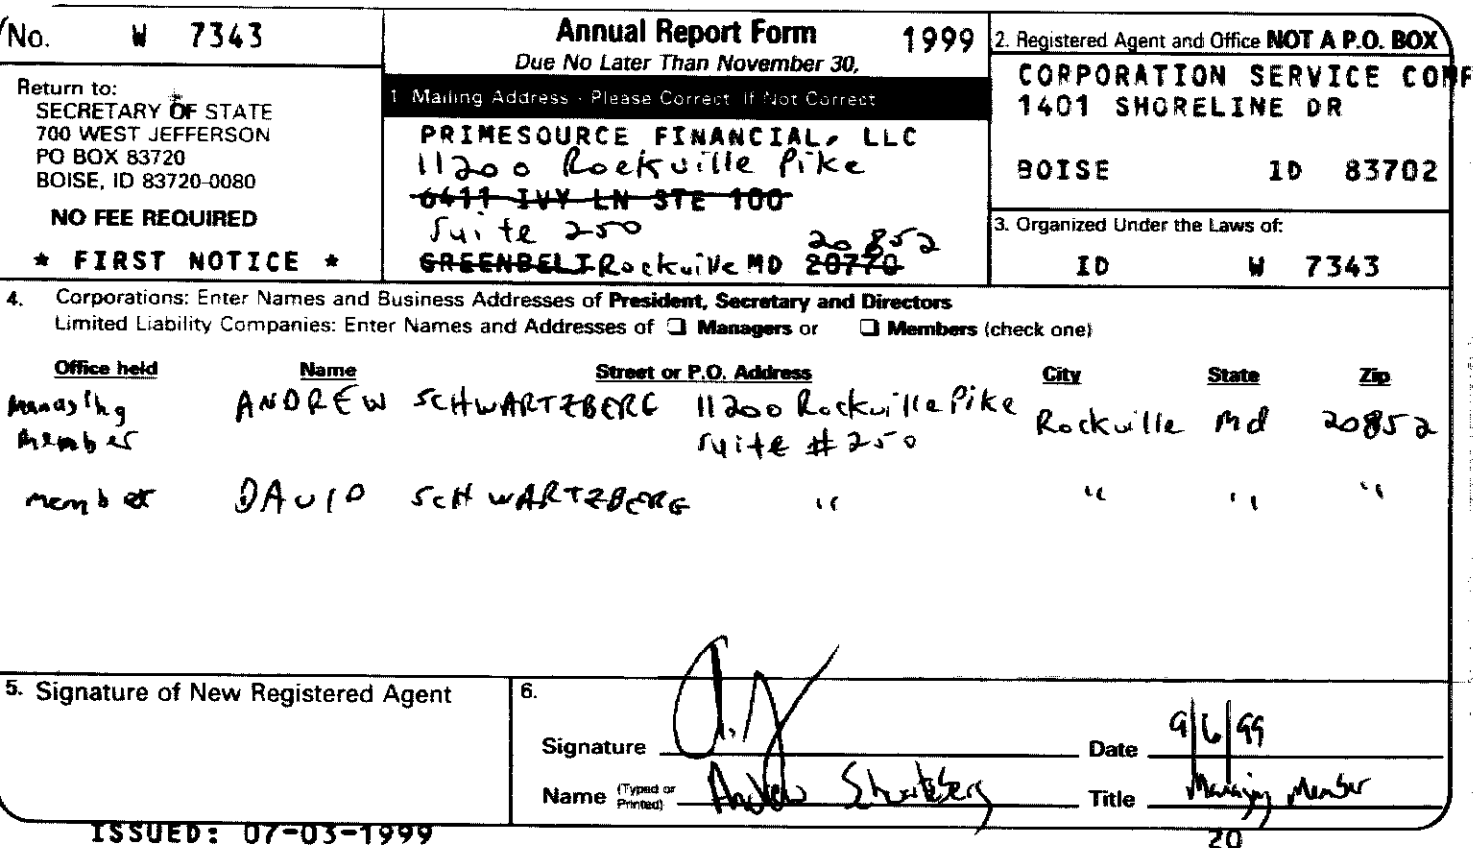 No. W 7343
Annual Report Form 1999
Due No Later Than November 30,
Return to:
SECRETARY OF STATE
700 WEST JEFFERSON
PO BOX 83720
BOISE, ID 83720-0080
NO FEE REQUIRED
* FIRST NOTICE *
1 Mailing Address - Please Correct If Not Correct
PRIMESOURCE FINANCIAL, LLC
11200 Rockville Pike
6411 IVY LN STE 100
Suite 250
20852
GREENBELT Rockville MD 20770
2. Registered Agent and Office NOT A P.O. BOX
CORPORATION SERVICE COMP
1401 SHORELINE DR
BOISE ID 83702
3. Organized Under the Laws of:
ID W 7343
4. Corporations: Enter Names and Business Addresses of President, Secretary and Directors
Limited Liability Companies: Enter Names and Addresses of ❑ Managers or ❑ Members (check one)
Office held Name Street or P.O. Address City State Zip
Managing ANDREW SCHWARTZBERG 11200 Rockville Pike Rockville Md 20852
member Suite #250
member DAVID SCHWARTZBERG " " " "
5. Signature of New Registered Agent
6.
Signature Date 9/6/99
Name (Typed or Printed) Andrew Schwartzberg Title Managing Member
ISSUED: 07-03-1999
20